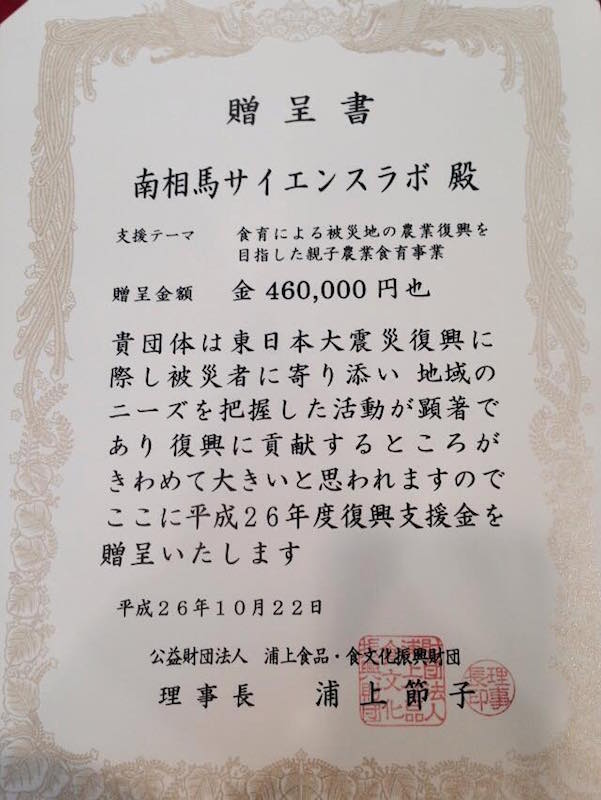 贈呈書
南相馬サイエンスラボ 殿
支援テーマ 食育による被災地の農業復興を
目指した親子農業食育事業
贈呈金額 金 460,000 円也
貴団体は東日本大震災復興に
際し被災者に寄り添い 地域の
ニーズを把握した活動が顕著で
あり 復興に貢献するところが
きわめて大きいと思われますので
ここに平成26年度復興支援金を
贈呈いたします
平成26年10月22日
公益財団法人 浦上食品・食文化振興財団
理事長 浦上節子
理事
長印